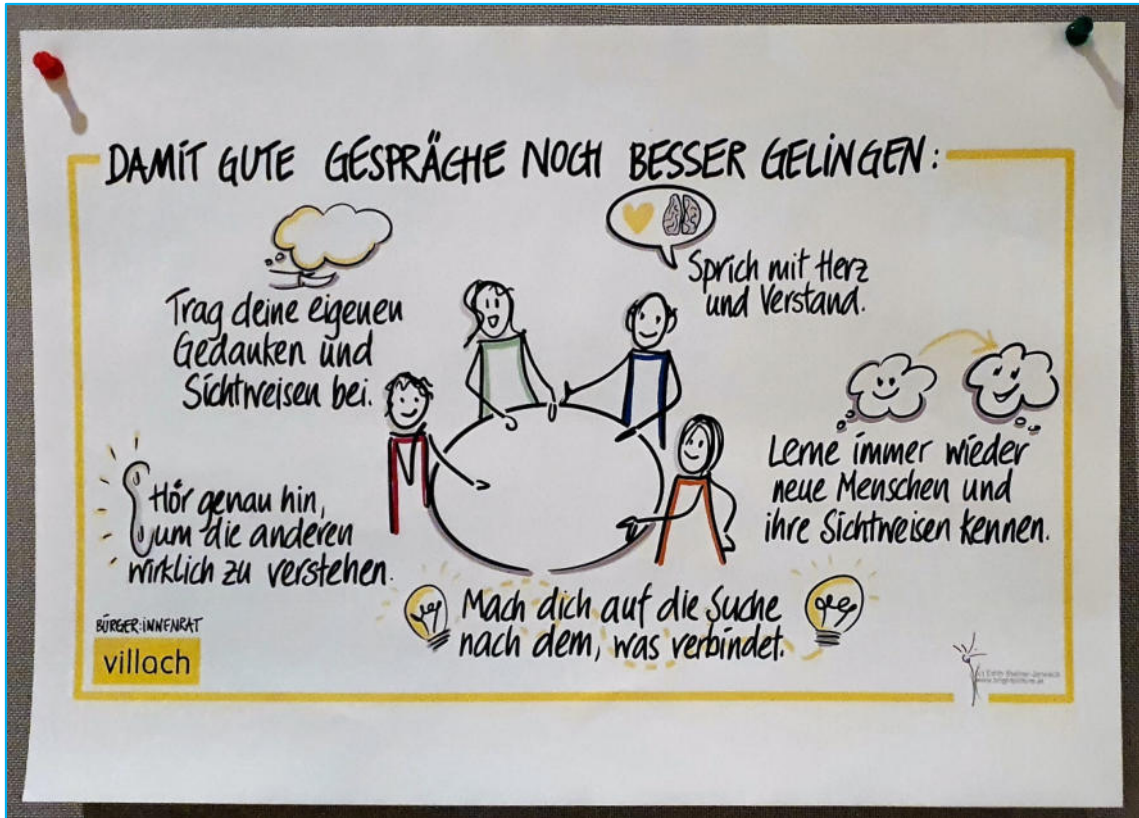 DAMIT GUTE GESPRÄCHE NOCH BESSER GELINGEN:
Sprich mit Herz
und Verstand.
Trag deine eigenen
Gedanken und
Sichtweisen bei.
Lerne immer wieder
neue Menschen und
ihre Sichtweisen kennen.
Hör genau hin,
um die anderen
wirklich zu verstehen.
Mach dich auf die Suche
nach dem, was verbindet.
BÜRGER:INNENRAT
villach